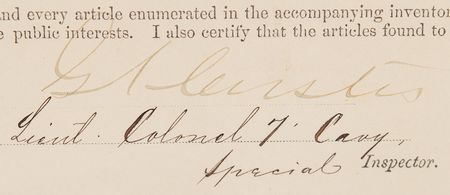 and every article enumerated in the accompanying inventor
e public interests. I also certify that the articles found to
G A Custer
Lieut. Colonel 7' Cavy,
Special Inspector.